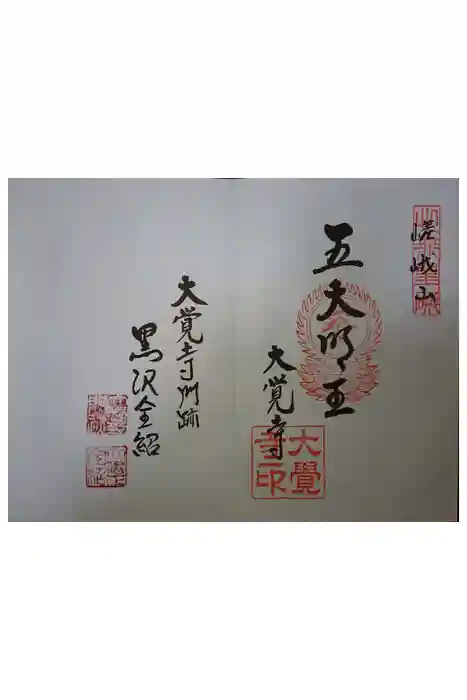 嵯峨山
五大明王
大覚寺
大覺寺印
大覚寺門跡
黒沢全紹